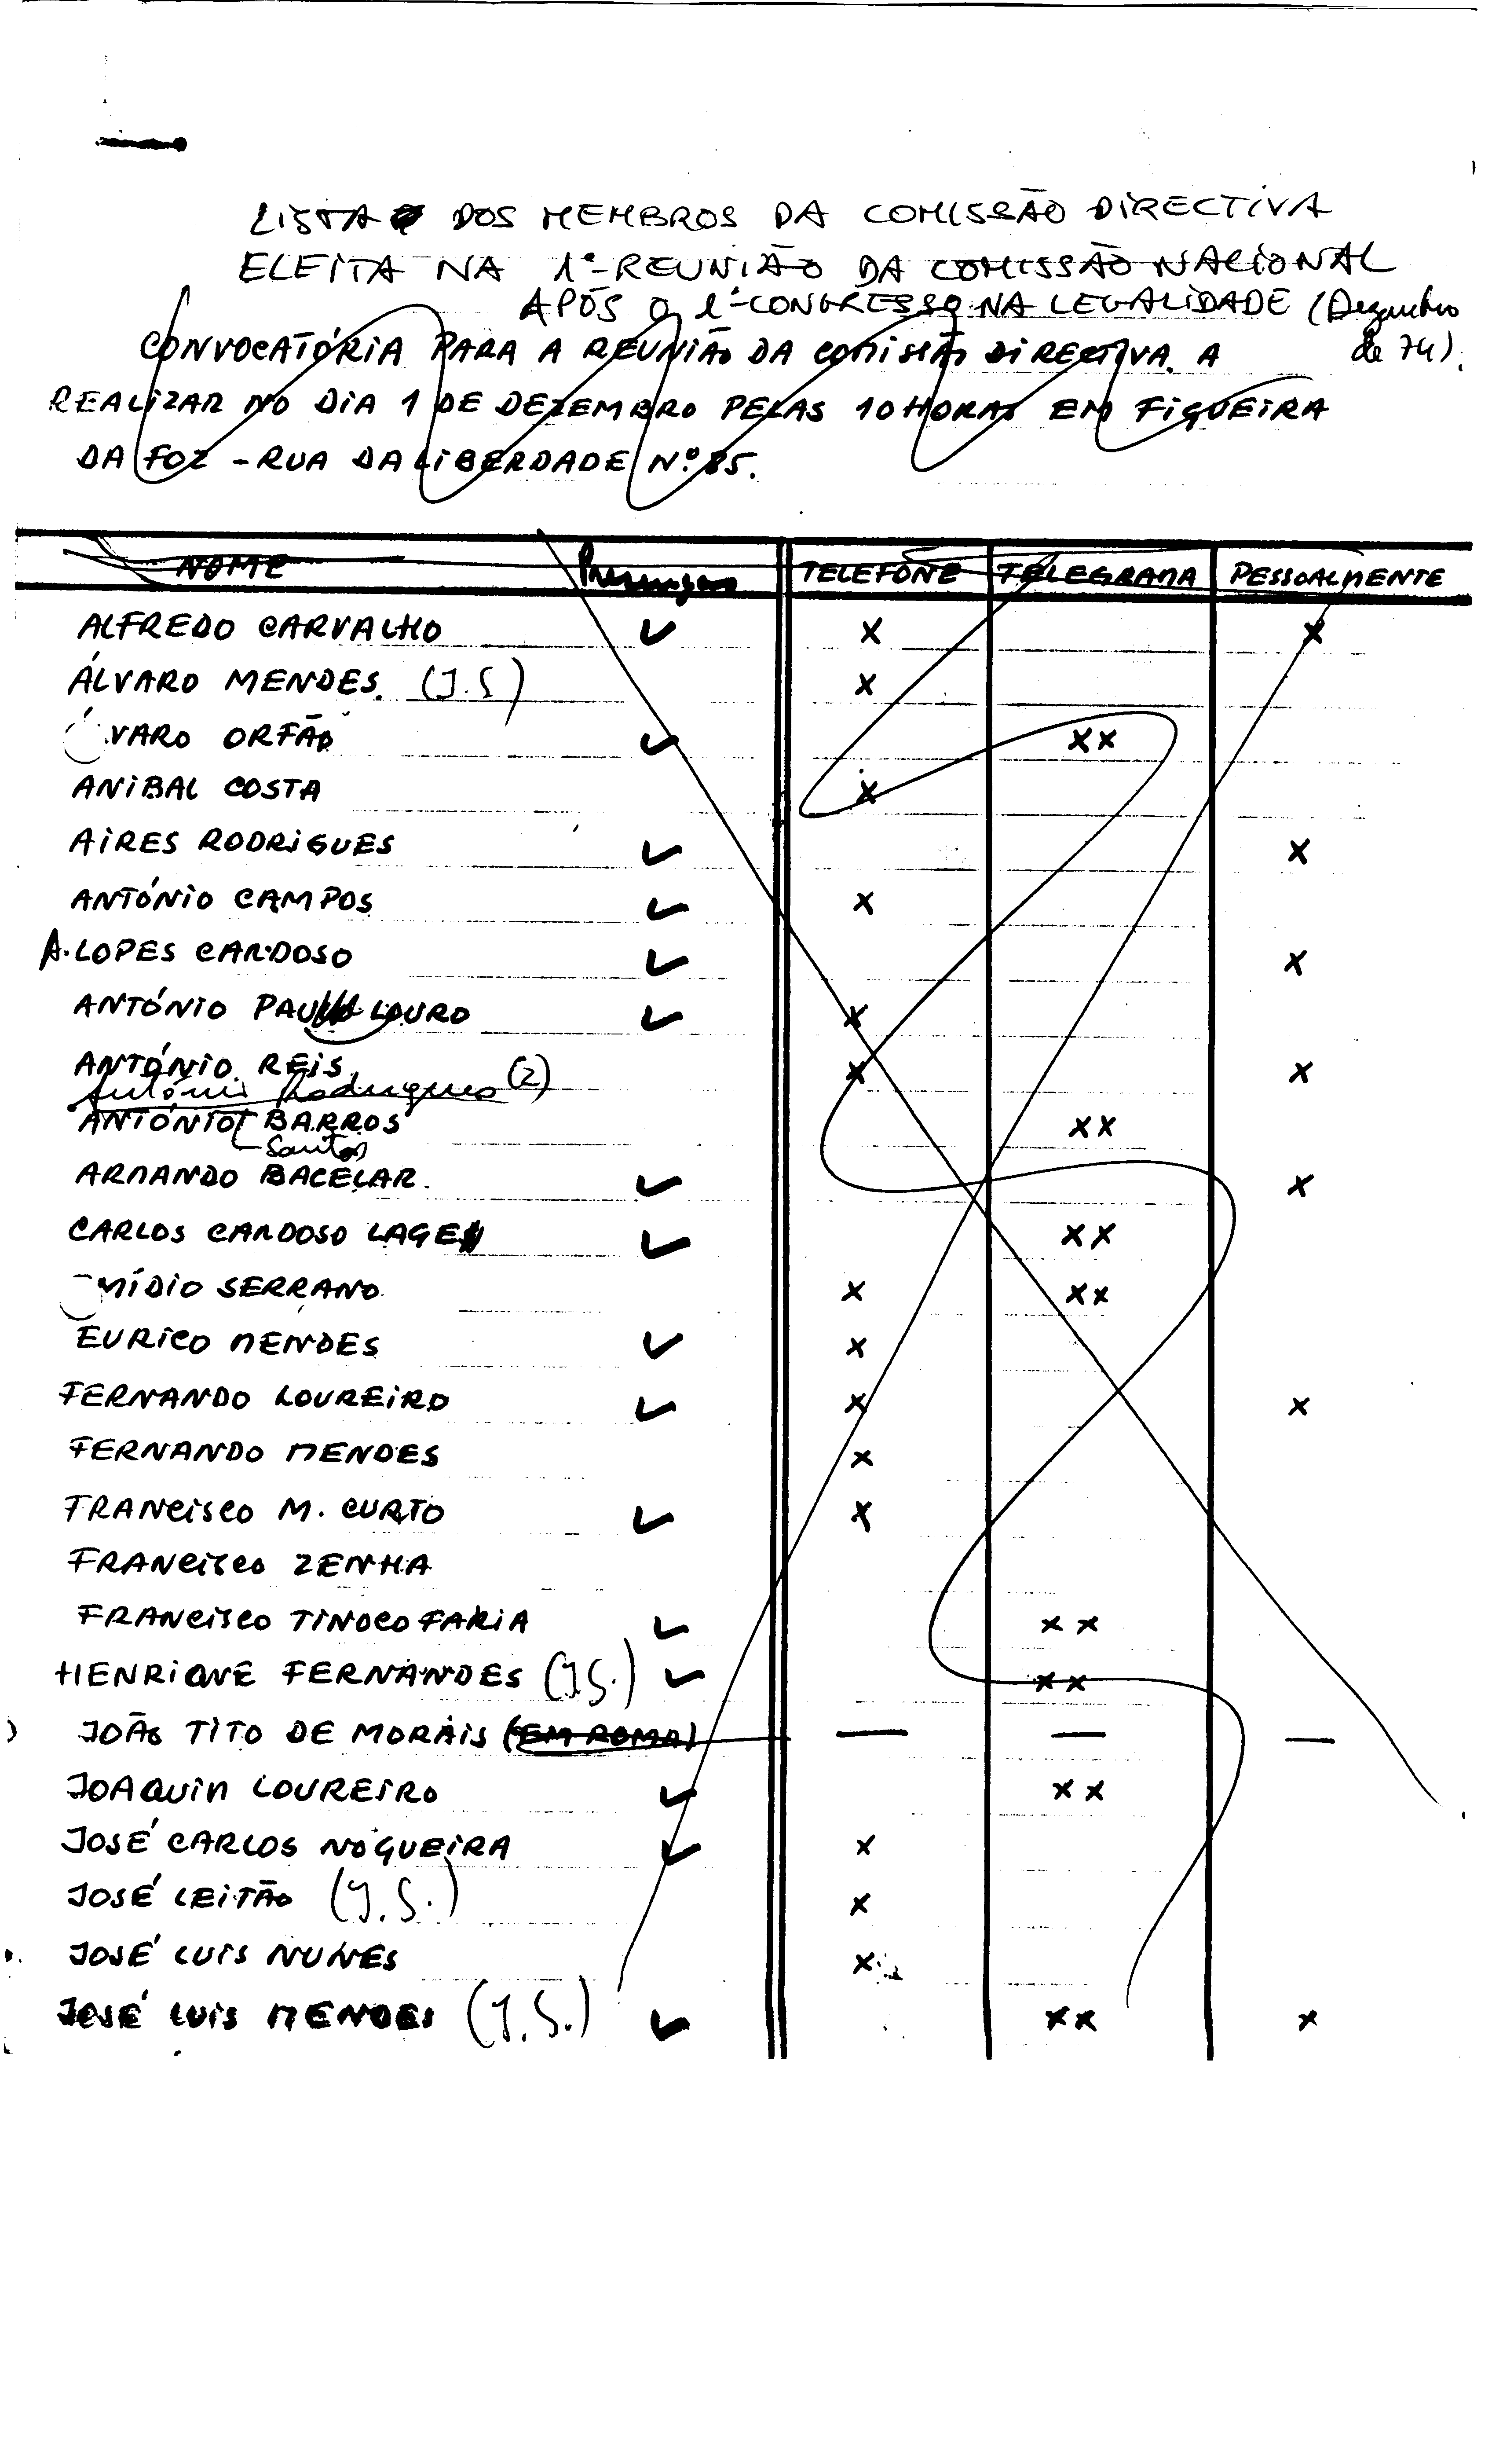 LISTA DOS MEMBROS DA COMISSÃO DIRECTIVA
ELEITA NA 1ª-REUNIÃO DA COMISSÃO NACIONAL
APÓS O 1º-CONGRESSO NA LEGALIDADE (Dezembro
de 74).
CONVOCATÓRIA PARA A REUNIÃO DA COMISSÃO DIRECTIVA. A
REALIZAR NO DIA 1 DE DEZEMBRO PELAS 10 HORAS EM FIGUEIRA
DA FOZ - RUA DA LIBERDADE Nº 85.
NOME Presenças TELEFONE TELEGRAMA PESSOALMENTE
ALFREDO CARVALHO ✓ X X
ÁLVARO MENDES. (J.S) X
VARO ORFÃO ✓ XX
ANIBAL COSTA X
AIRES RODRIGUES ✓ X
ANTÓNIO CAMPOS ✓ X
A. LOPES CARDOSO ✓ X
ANTÓNIO PAU LOURO ✓ X
ANTÓNIO REIS X X
António Rodrigues (2)
ANTÓNIO BARROS XX
Santos
ARMANDO BACELAR. ✓ X
CARLOS CARDOSO LAGE ✓ XX
MÍDIO SERRANO X XX
EURICO MENDES ✓ X
FERNANDO LOUREIRO ✓ X X
FERNANDO MENDES X
FRANCISCO M. CURTO ✓ X
FRANCISCO ZENHA
FRANCISCO TINOCO FARIA ✓ XX
HENRIQUE FERNANDES (J.S.) ✓ XX
JOÃO TITO DE MORAIS (EM ROMA) — — —
JOAQUIM LOUREIRO ✓ XX
JOSÉ CARLOS NOGUEIRA ✓ X
JOSÉ LEITÃO (J.S.) X
JOSÉ LUIS NUNES X
JOSÉ LUIS MENDES (J.S.) ✓ XX X